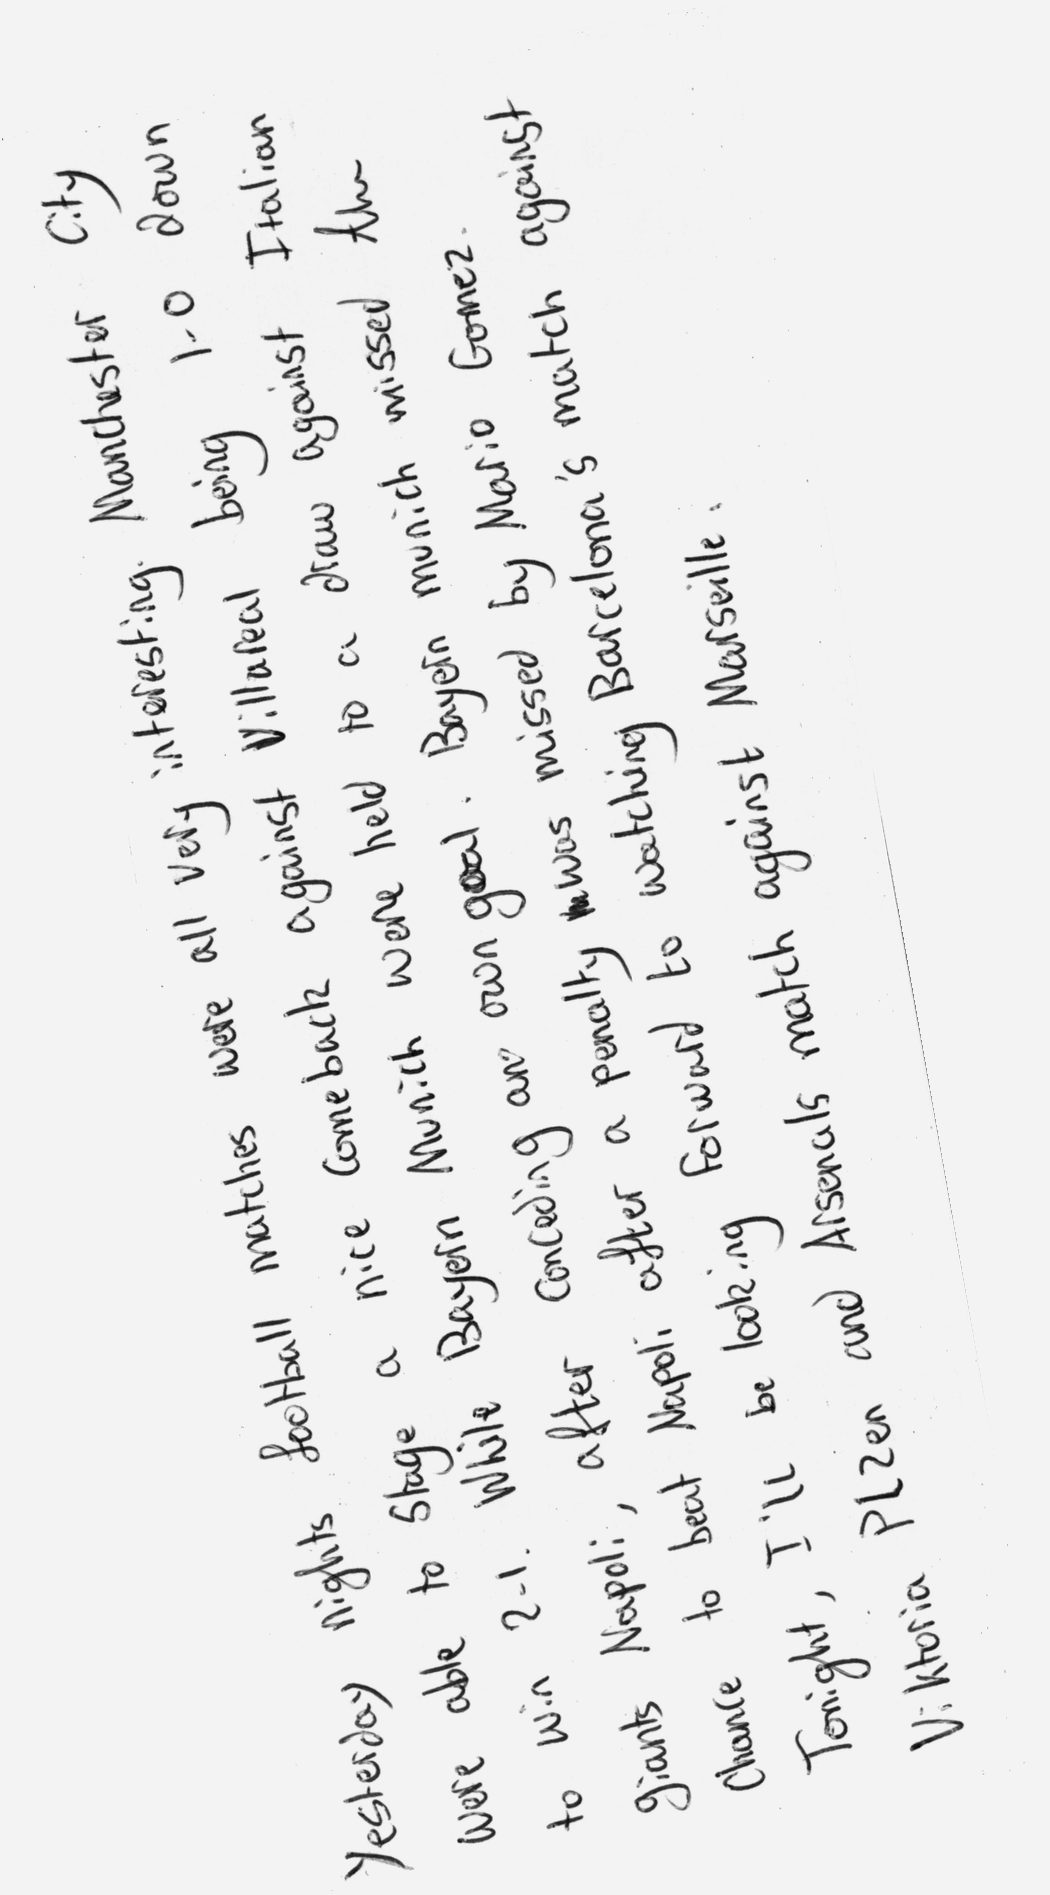 Yesterday nights football matches were all very interesting. Manchester City
were able to stage a nice comeback against Villareal being 1-0 down
to win 2-1. While Bayern Munich were held to a draw against Italian
giants Napoli, after conceding an own goal. Bayern munich missed the
chance to beat Napoli after a penalty was missed by Mario Gomez.
Tonight, I'll be looking forward to watching Barcelona's match against
Viktoria PLzen and Arsenals match against Marseille.